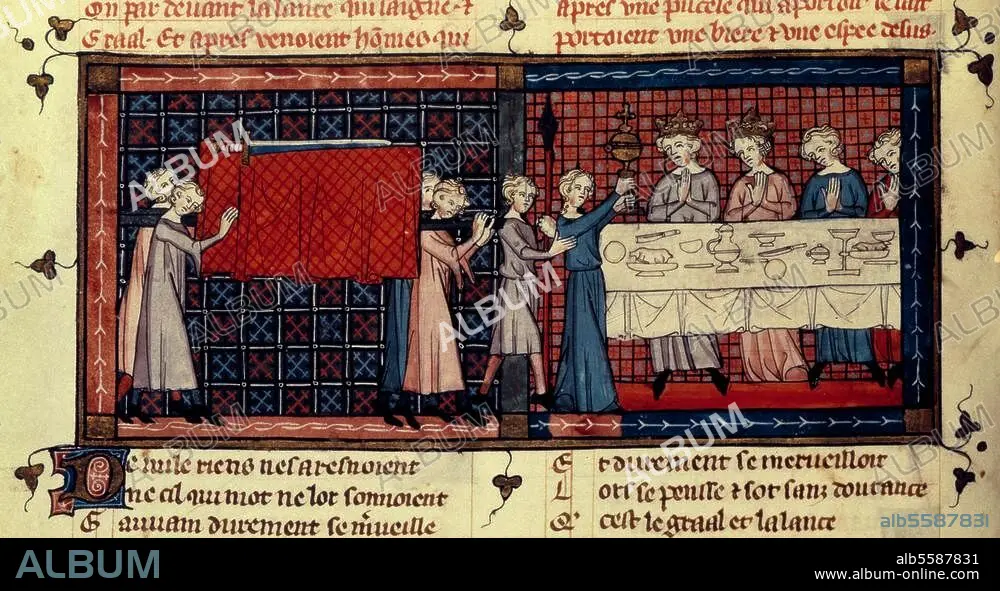 on par devant la lance qui saigne ⁊
Graal. Et apres venoient hōmes qui
apres vne pucele qui aportoit le
portoient vne biere ⁊ vne espee desus.
De nule riens nes aresnoient
Ne cil qui mot ne lot sonnoient
Gauuain durement se m̄ueille
Et durement se merueilloit
Lors se pensse ⁊ sot sanz doutance
Q' cest le graal et la lance
ALBUM
ALBUM
ALBUM
ALBUM
ALBUM
ALBUM
alb5587831
ALBUM
alb5587831
www.album-online.com